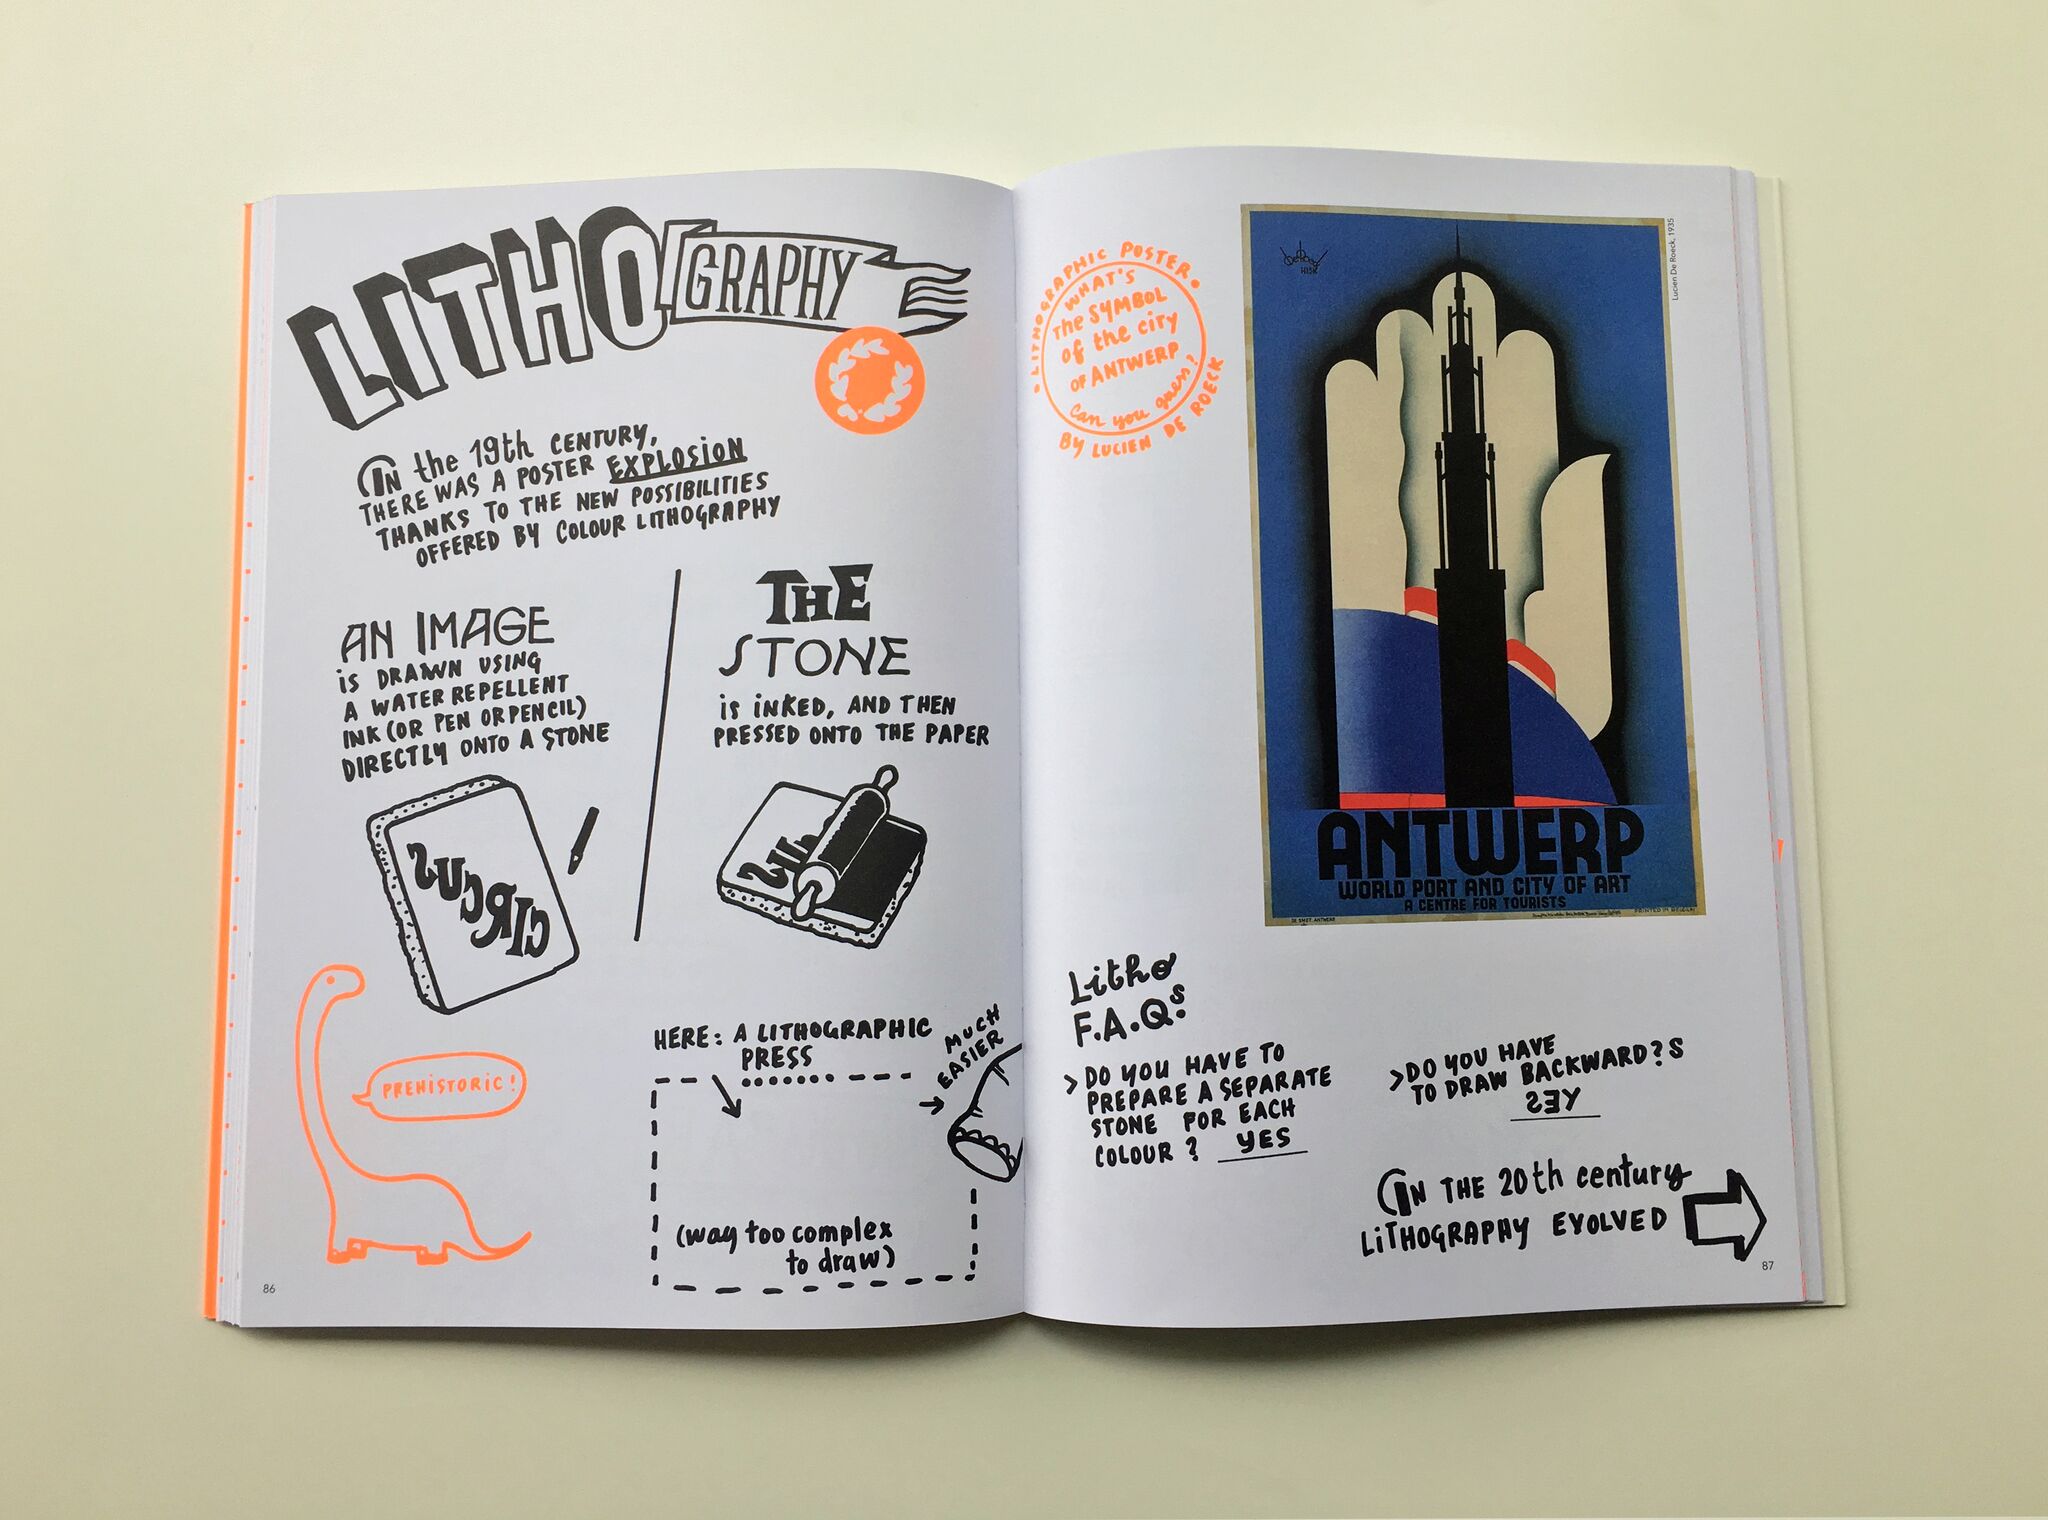 LITHO
GRAPHY
IN the 19th CENTURY,
THERE WAS A POSTER EXPLOSION
THANKS TO THE NEW POSSIBILITIES
OFFERED BY COLOUR LITHOGRAPHY
AN IMAGE
is DRAWN USING
A WATER REPELLENT
INK (OR PEN OR PENCIL)
DIRECTLY ONTO A STONE
CIRCUS
THE
STONE
is INKED, AND THEN
PRESSED ONTO THE PAPER
PREHISTORIC!
HERE: A LITHOGRAPHIC
PRESS
MUCH
EASIER
(way too complex
to draw)
86
LITHOGRAPHIC POSTER
WHAT'S
The SYMBOL
of the city
OF ANTWERP
Can you guess?
BY LUCIEN DE ROECK
Lucien De Roeck, 1935
ANTWERP
WORLD PORT AND CITY OF ART
A CENTRE FOR TOURISTS
DE SMET. ANTWERP
PRINTED IN BELGIUM
Litho
F.A.Q.s
> DO YOU HAVE TO
PREPARE A SEPARATE
STONE FOR EACH
COLOUR? YES
> DO YOU HAVE
TO DRAW BACKWARD?S
YES
IN THE 20th century
LITHOGRAPHY EVOLVED
87